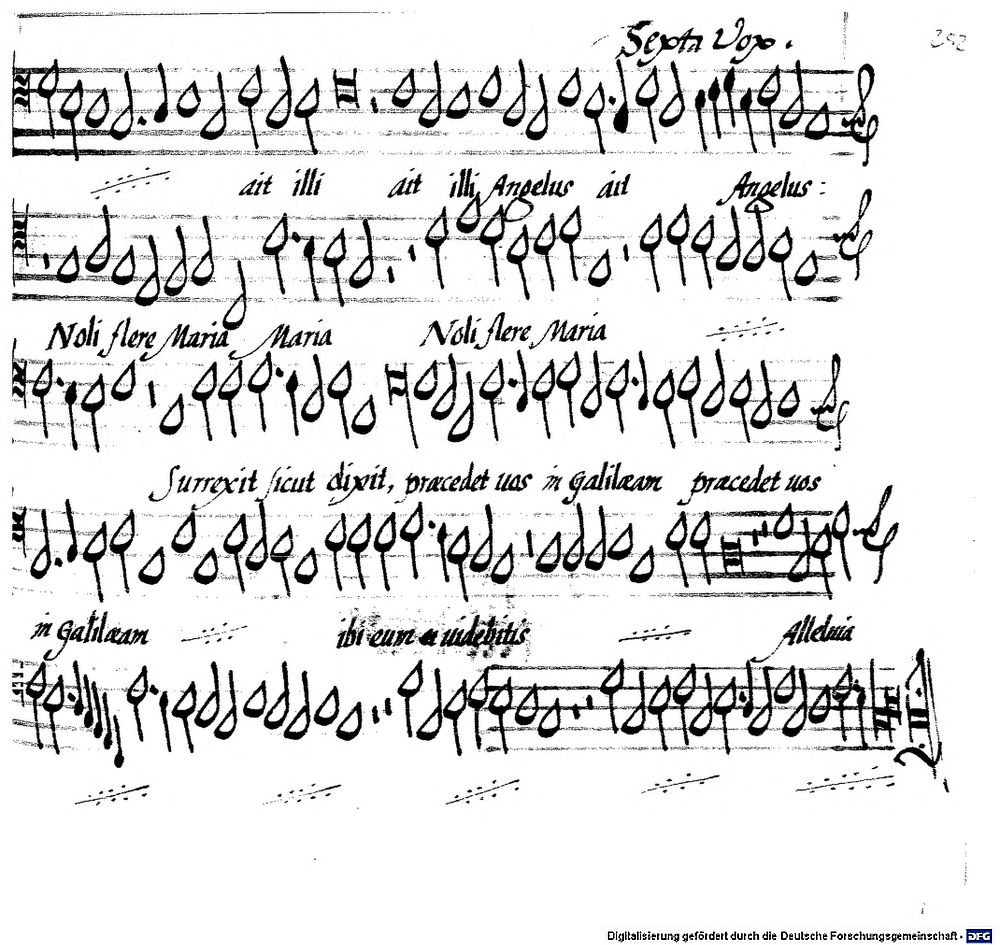 Sexta Vox.
252
ait illi ait illi Angelus ait Angelus:
Noli flere Maria Maria Noli flere Maria
Surrexit sicut dixit, præcedet uos in Galilæam præcedet uos
in Galilæam ibi eum uidebitis Alleluia
Digitalisierung gefördert durch die Deutsche Forschungsgemeinschaft - DFG